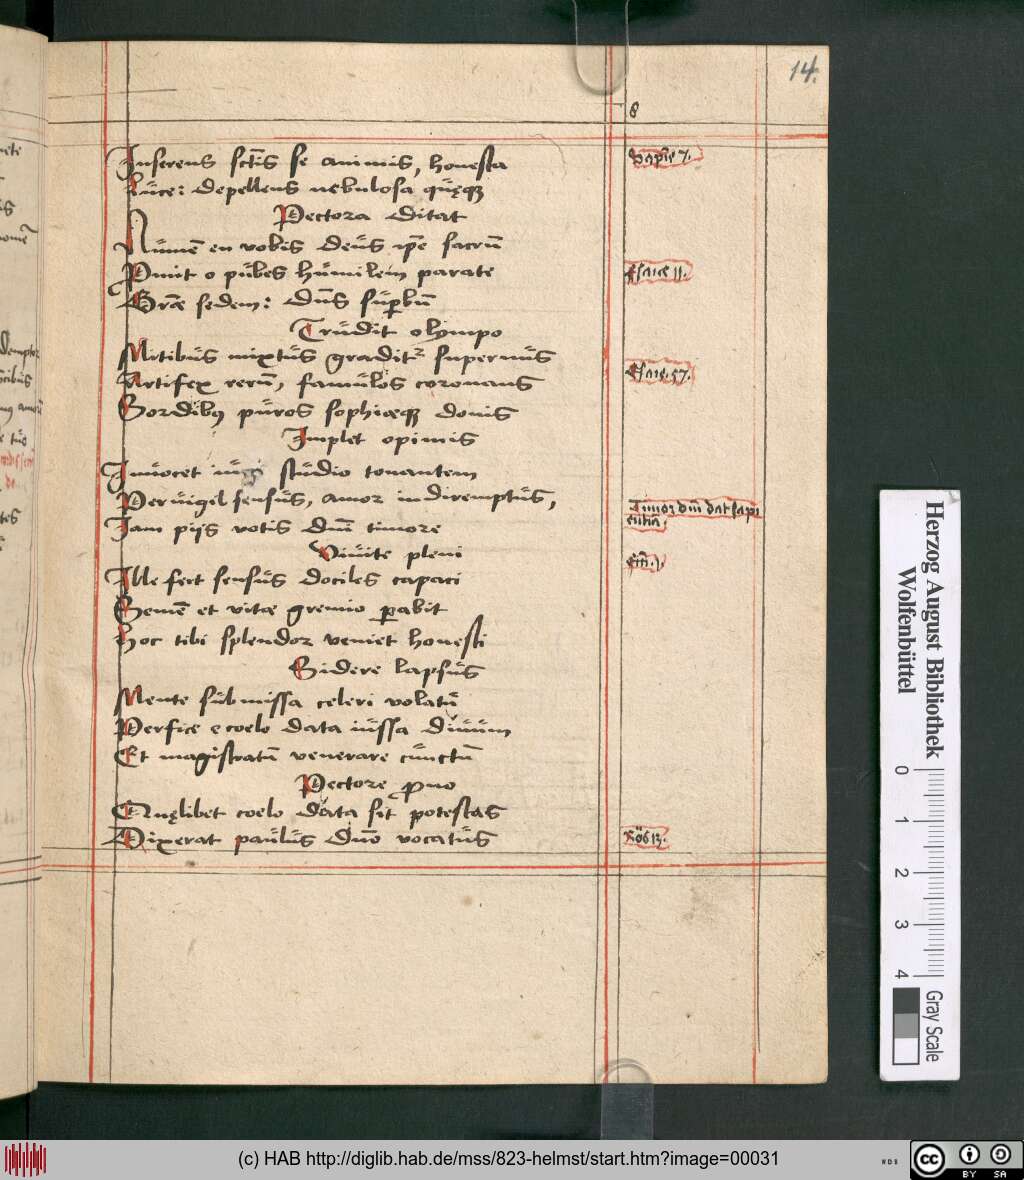 14.
8
Inserens sctīs se animis, honesta
Luce: depellens nebulosa quęq
Pectora ditat
Numē en vobis deus ipē sacrū
Poīt o pubes humilem parate
Grāe sedem: dn̄s supbū
Trudit olympo
Mitibus mixtus gradit supernus
Artifex rerū, famulos coronans
Sordibꝯ puros sophiæq donis
Implet opimis
Inuocet studio tonantem
Peruigil sensus, amor indiremptus,
Iam piis votis dnī timore
Viuite pleni
Ille fert sensus dociles capaci
Semē et vitæ gremio parabit
Hoc tibi splendor veniet honesti
Sidere lapsus
Mente submissa celeri volatu
Perfice e coelo data iussa diuum
Et magistratū venerare cunctū
Pectore prono
Quęlibet coelo data sit potestas
Dixerat paulus duō vocatus
Sapiē 7.
Esaiæ 11.
Esaiæ. 57.
Timor dnī dat sapi
entiā.
Eccī. 1.
Rō 13.
Herzog August Bibliothek
Wolfenbüttel
0 1 2 3 4
Gray Scale
(c) HAB http://diglib.hab.de/mss/823-helmst/start.htm?image=00031
cc BY SA